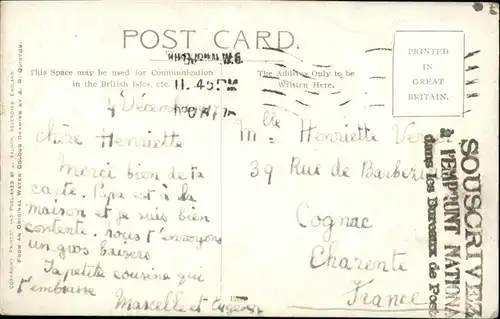 POST CARD.
This Space may be used for Communication
in the British Isles, etc.
The Address Only to be
Written Here.
PRINTED
IN
GREAT
BRITAIN.
11.45 PM
4 Décembre
Chère Henriette
Merci bien de ta
carte. Papa est à la
maison et je suis bien
contente. nous t'envoyons
un gros baisers
Ta petite cousine qui
t'embrasse
Marcelle et Eugène
Mlle Henriette
39 Rue de Barbezieux
Cognac
Charente
France
SOUSCRIVEZ
à l'EMPRUNT NATIONAL
dans les Bureaux de Poste
FROM AN ORIGINAL WATER COLOUR DRAWING BY A. R. QUINTON.
COPYRIGHT PRINTED AND PUBLISHED BY J. SALMON, SEVENOAKS, ENGLAND.